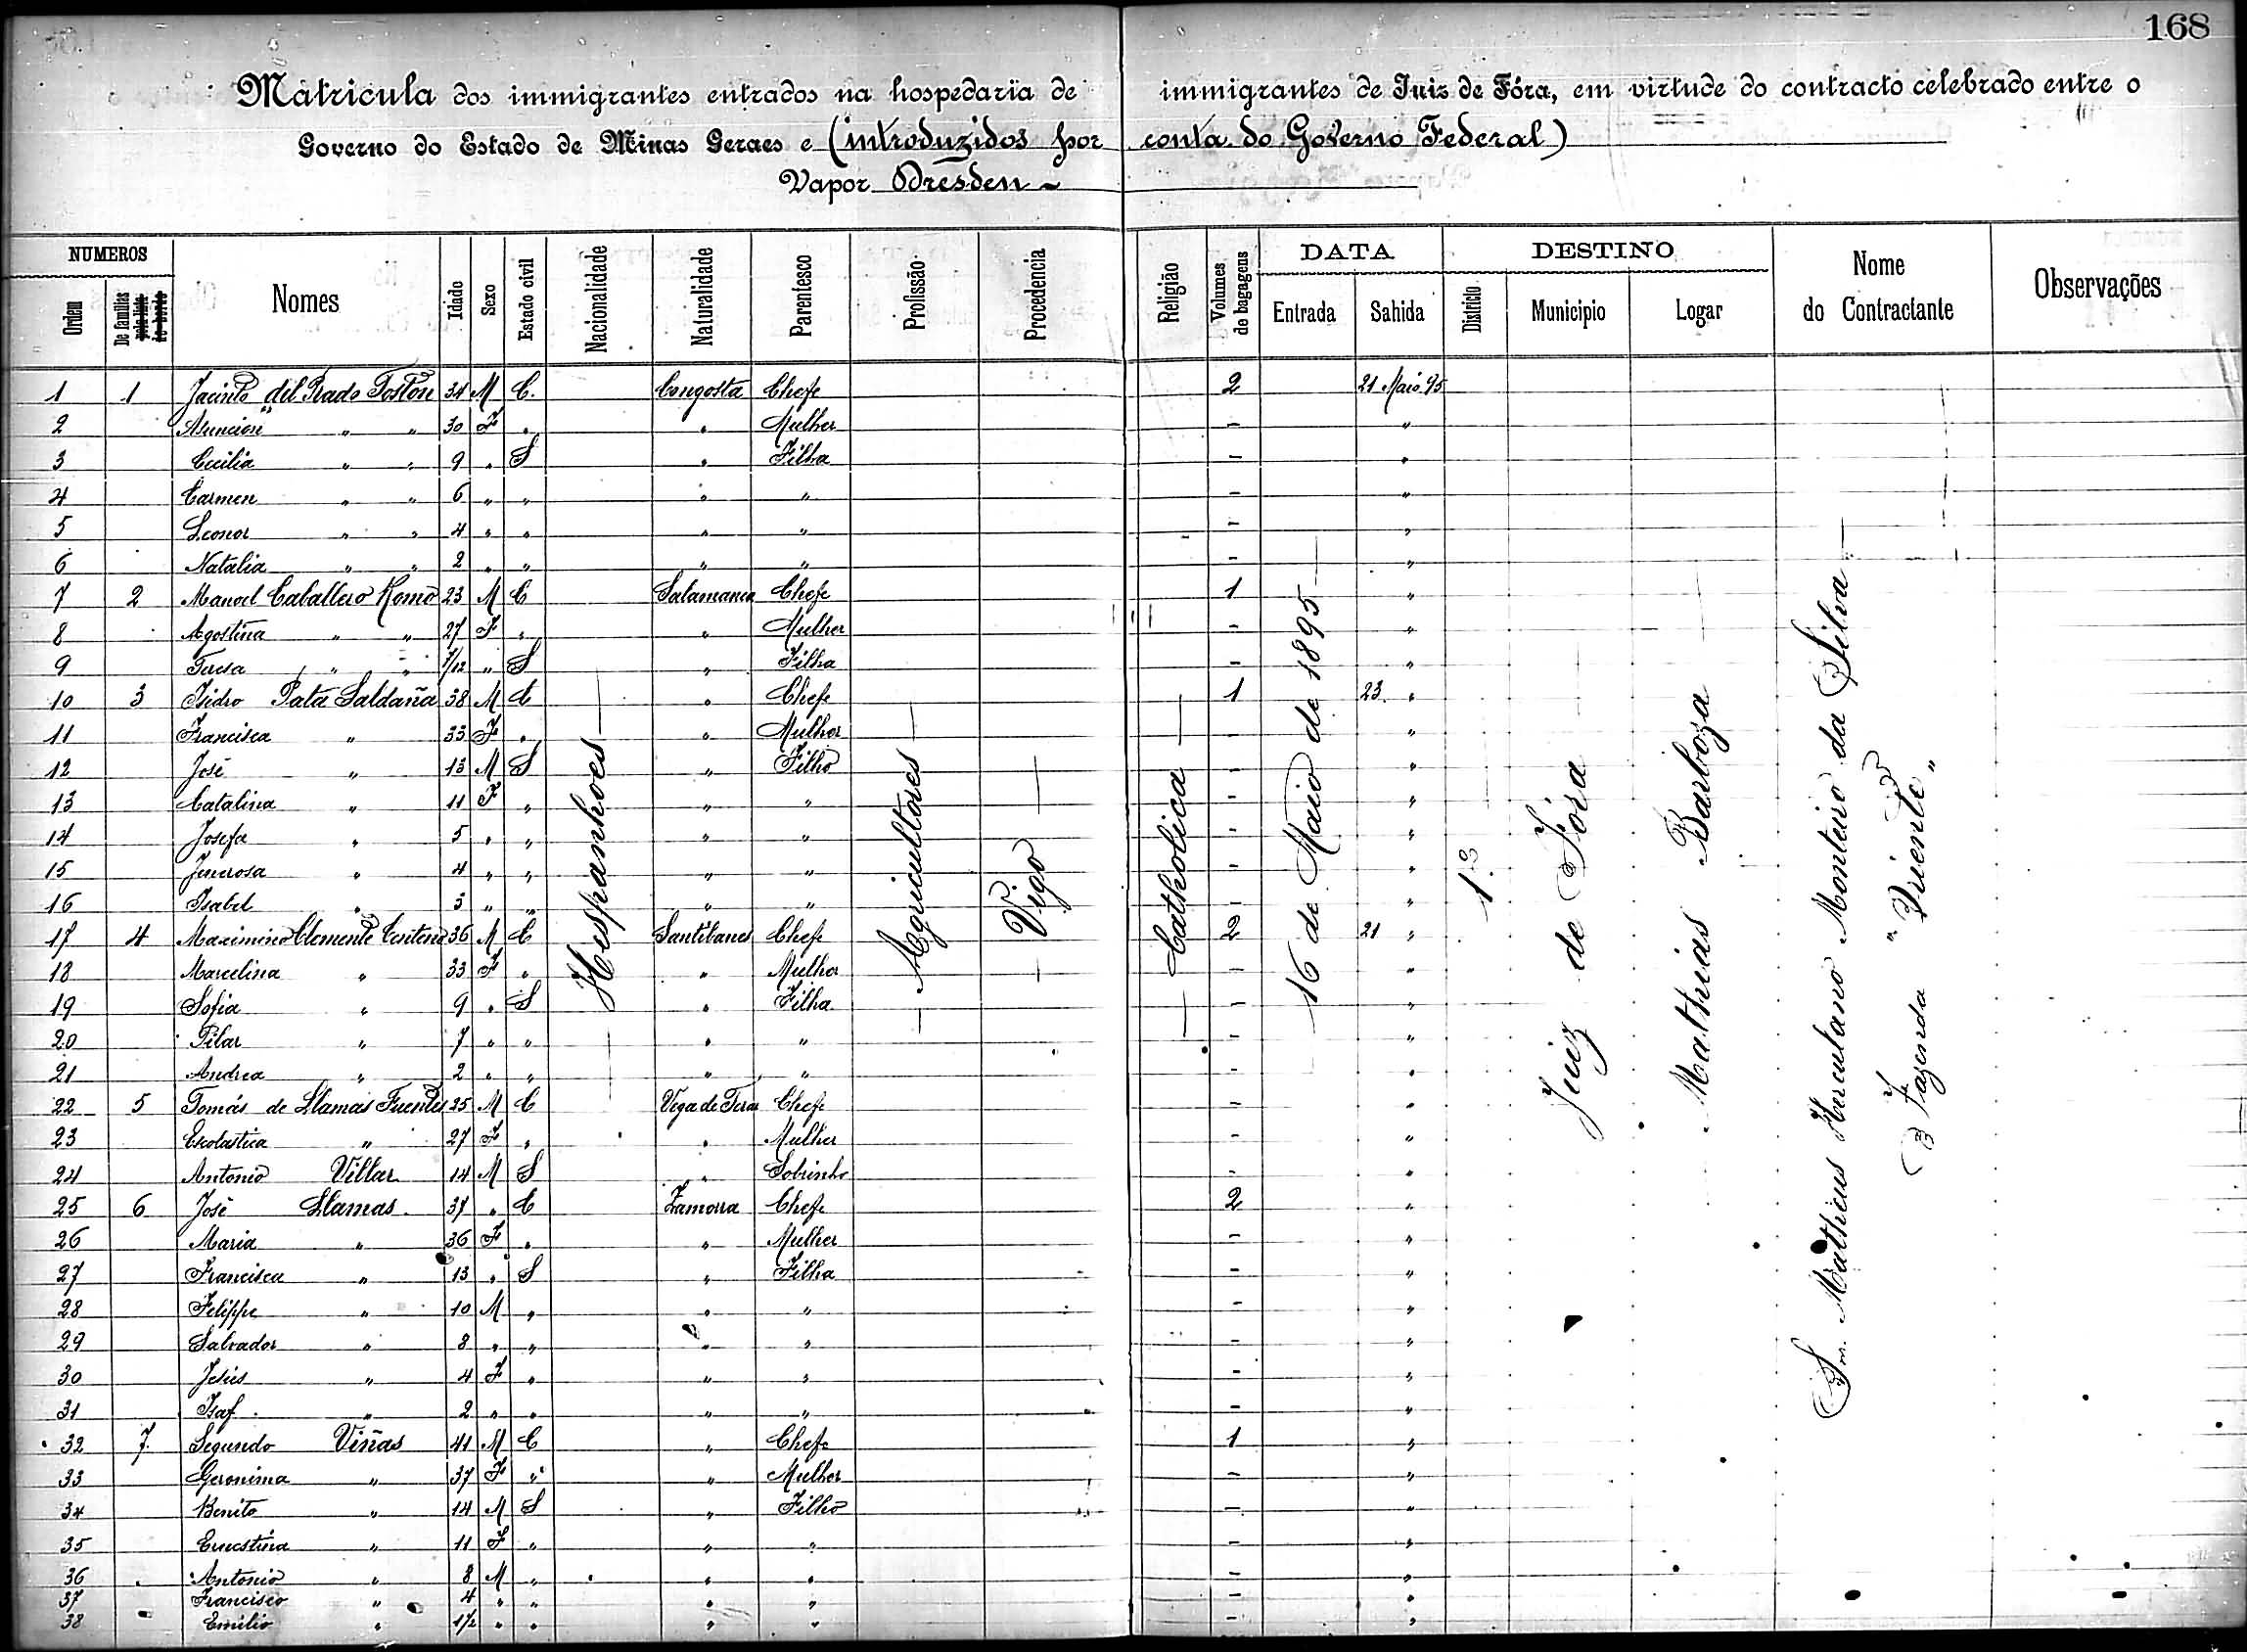 168
Matricula dos immigrantes entrados na hospedaria de immigrantes de Juiz de Fóra, em virtude do contracto celebrado entre o
Governo do Estado de Minas Geraes e (introduzidos por conta do Governo Federal)
Vapor Dresden
NUMEROS Nomes Idade Sexo Estado civil Nacionalidade Naturalidade Parentesco Profissão Procedencia Religião Volumes de bagagens DATA DESTINO Nome do Contractante Observações
Ordem De familias pela lista de bordo Entrada Sahida Districto Municipio Logar
1 1 Jacinto del Prado Poston 34 M C. Congosta Chefe 2 21 Maio 95
2 Asuncion " " 30 F " " Mulher - "
3 Cecilia " " 9 " S " Filha - "
4 Carmen " " 6 " " " " - "
5 Leonor " " 4 " " " " - "
6 Natalia " " 2 " " " " - "
7 2 Manoel Caballero Romo 23 M C Salamanca Chefe 1 "
8 Agostina " " 27 F " " Mulher - "
9 Teresa " " 1/12 " S " Filha - "
10 3 Isidro Pata Saldaña 38 M C " Chefe 1 23 "
11 Francisca " 33 F " " Mulher - "
12 José " 13 M S " Filho - "
13 Catalina " 11 F " " " - "
14 Josefa " 5 " " " " - "
15 Jenerosa " 4 " " " " - "
16 Isabel " 3 " " " " - "
17 4 Maximino Clemente 36 M C Santibanes Chefe 2 21 "
18 Marcelina " 33 F " " Mulher - "
19 Sofia " 9 " S " Filha - "
20 Pilar " 7 " " " " - "
21 Andrea " 2 " " " " - "
22 5 Tomás de Llamas Fuentes 25 M C Vega de Tera Chefe - "
23 Escolastica " 27 F " " Mulher - "
24 Antonio Villar 14 M S " Sobrinho - "
25 6 José Llamas 37 " C Zamorra Chefe 2 "
26 Maria " 36 F " " Mulher - "
27 Francisca " 13 " S " Filha - "
28 Felippe " 10 M " " " - "
29 Salvador " 8 " " " " - "
30 Jesus " 4 F " " " - "
31 " 2 " " " " - "
32 7 Segundo Viñas 41 M C " Chefe 1 "
33 Geronima " 37 F " " Mulher - "
34 Benito " 14 M S " Filho - "
35 Ernestina " 11 F " " " - "
36 Antonio " 8 M " " " - "
37 Francisco " 4 " " " " - "
38 Emilio " 1/2 " " " " - "
Hespanhoes
Agricultores
Vigo
Catholica
16 de Maio de 1895
1º
Juiz de Fóra
Mathias Barboza
Snr. Matheus Herculano Monteiro da Silva
Fazenda "Oriente"